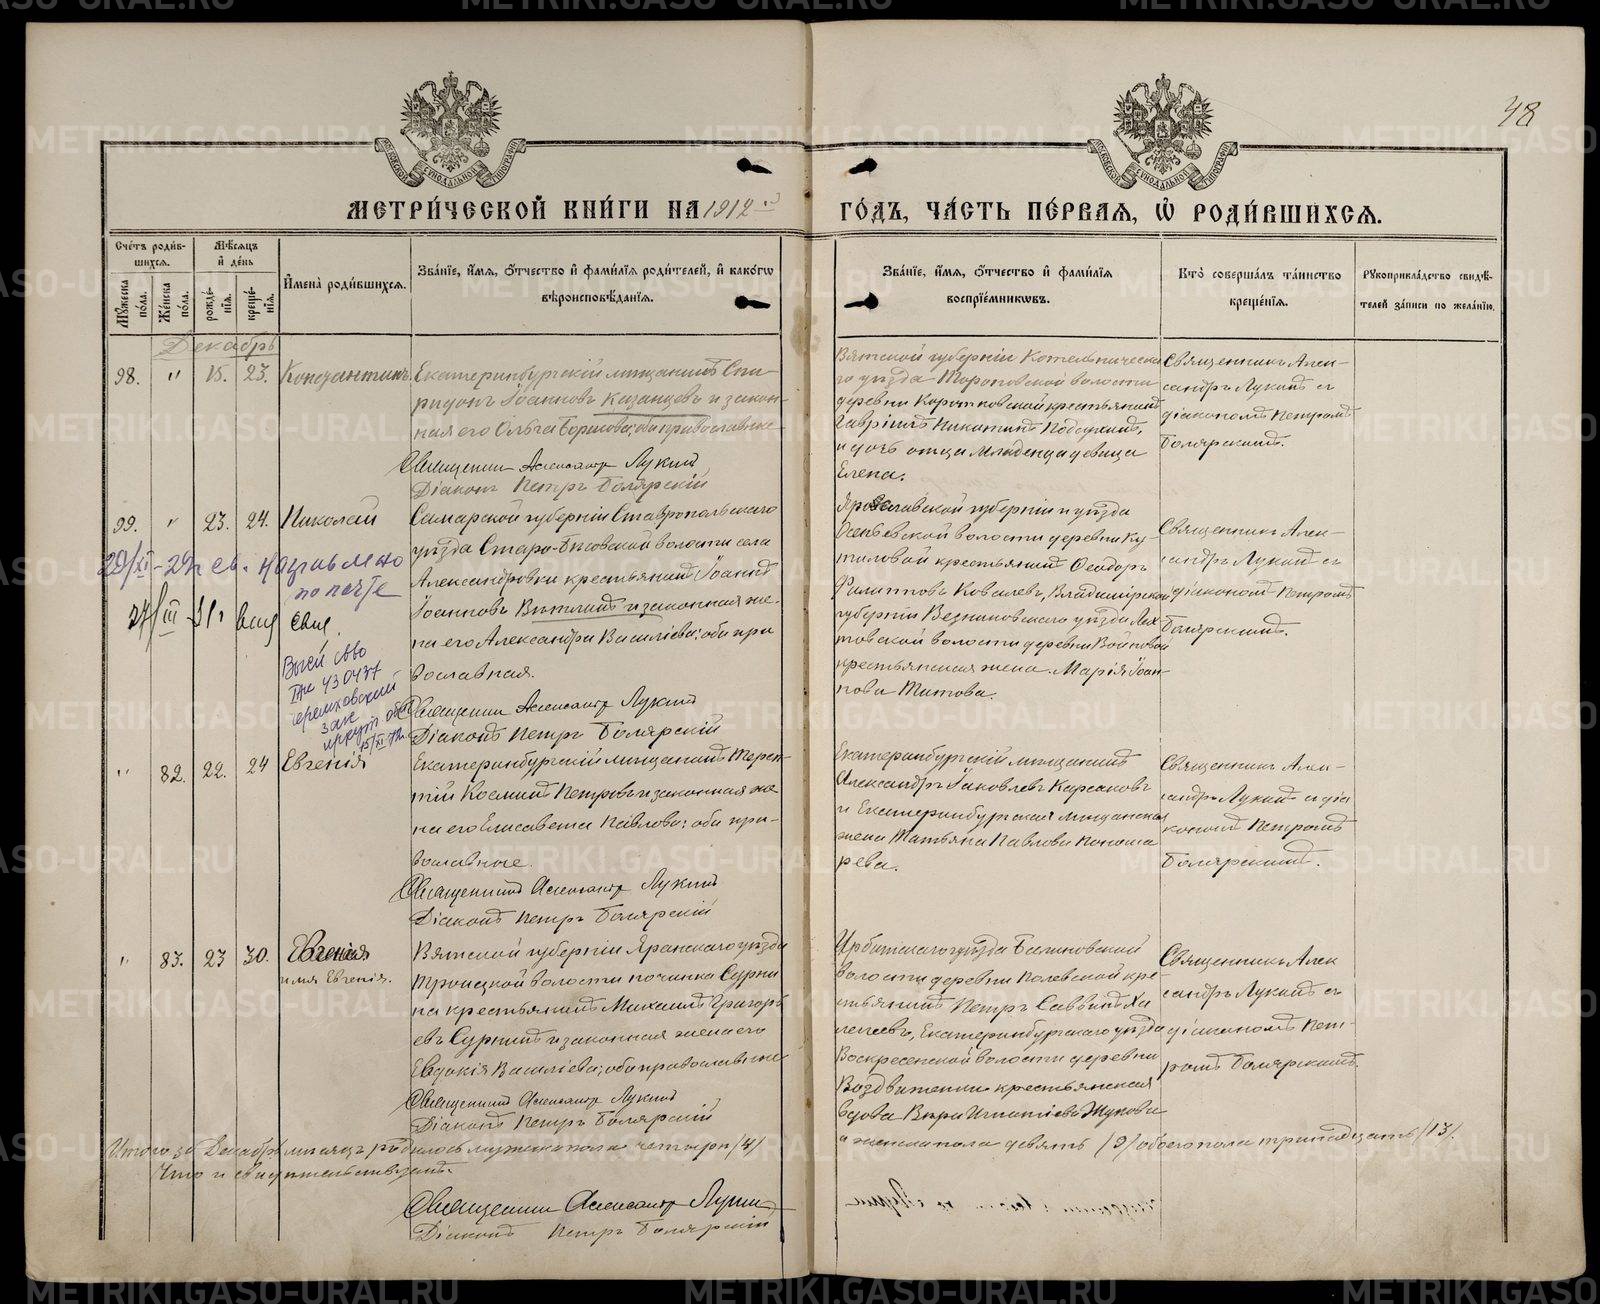 48
МЕТРИ́ЧЕСКОЙ КНИ́ГИ НА 1912 й
ГО́ДЪ, ЧА́СТЬ ПЕ́РВАЯ, Ѡ҆ РОДИ́ВШИХСЯ.
Сче́тъ роди́вшихся.
Мѣ́сяцъ и҆ де́нь
И҆мена̀ роди́вшихся.
Зва́нїе, и҆́мя, ѻ҆́тчество и҆ фами́лїѧ роди́телей, и҆ како́гѡ
вѣроисповѣ́данїѧ.
Зва́нїе, и҆́мя, ѻ҆́тчество и҆ фами́лїѧ
воспрїе́мникѡвъ.
Кто̀ соверша́лъ та́инство
креще́нїѧ.
Рꙋкоприкла́дство свидѣ́-
телей за́писи по жела́нїю.
Мꙋ́жеска по́ла.
Же́нска по́ла.
рожде́нїѧ.
креще́нїѧ.
Декабрь
98. " 15. 23. Константинъ.
Екатеринбургскій мѣщанинъ Спи-
ридонъ Іоанновъ Казанцевъ и закон-
ная его Ольга Борисова; оба православные
Священникъ Александръ Лукинъ
Діаконъ Петръ Болярскій
Вятской губерніи Котельническа-
го уѣзда Тороповской волости
деревни Коротковской крестьянинъ
Гавріилъ Никитинъ
и дочь отца младенца девица
Елена.
Священникъ Алек-
сандръ Лукинъ съ
діакономъ Петромъ
Болярскимъ.
99. " 23. 24. Николай
Самарской губерніи Ставропольскаго
уѣзда Старо-Бѣсовской волости села
Александровки крестьянинъ Іоаннъ
Іоанновъ и законная же-
на его Александра Василіева; оба пра-
вославная.
Священникъ Александръ Лукинъ
Діаконъ Петръ Болярскій
Ярославской губерніи и уѣзда
волости деревни Ку-
тиловой крестьянинъ Ѳеодоръ
Филипповъ Ковалевъ, Владимірской
губерніи Вязниковскаго уѣзда
товской волости деревни Войновой
крестьянская жена Марія Іоан-
нова Титова.
Священникъ Алек-
сандръ Лукинъ съ
діакономъ Петромъ
Болярскимъ.
29/XI - 29г св. направлено
по почте
27/III - 31г выд свид.
Выд св-во
430437
черемховский
загс
иркутс обл
15/XI-72г.
" 82. 22. 24 Евгенія
Екатеринбургскій мѣщанинъ Терен-
тій Косминъ Петровъ и законная же-
на его Елисавета Павлова; оба пра-
вославные.
Священникъ Александръ Лукинъ
Діаконъ Петръ Болярскій
Екатеринбургскій мѣщанинъ
Александръ Іаковлевъ Карсаковъ
и Екатеринбургская мѣщанская
жена Татьяна Павлова Понома
рева.
Священникъ Алек-
сандръ Лукинъ съ діа
кономъ Петромъ
Болярскимъ.
" 83. 23 30. Евгенія
имя Евгенія.
Вятской губерніи Яранскаго уѣзда
Троицкой волости починка Сурни
на крестьянинъ Михаилъ Григорь
евъ Сурнинъ и законная жена его
Евдокія Василіева; оба православные
Священникъ Александръ Лукинъ
Діаконъ Петръ Болярскій
Ирбитскаго уѣзда
волости деревни Полевской кре-
стьянинъ Петръ Саввинъ
Екатеринбургскаго уѣзда
Воскресенской волости деревни
Воздвиженки крестьянская
вдова Вѣра Игнатіева Жукова
Священникъ Алек
сандръ Лукинъ съ
діакономъ Пет-
ромъ Болярскимъ.
Итого за Декабрь мѣсяцъ родилось мужеска пола четыре /4/
а женска пола девять /9/ обоего пола тринадцать /13/.
Что и свидѣтельствуемъ.
Священникъ Александръ Лукинъ
Діаконъ Петръ Болярскій
METRIKI.GASO-URAL.RU